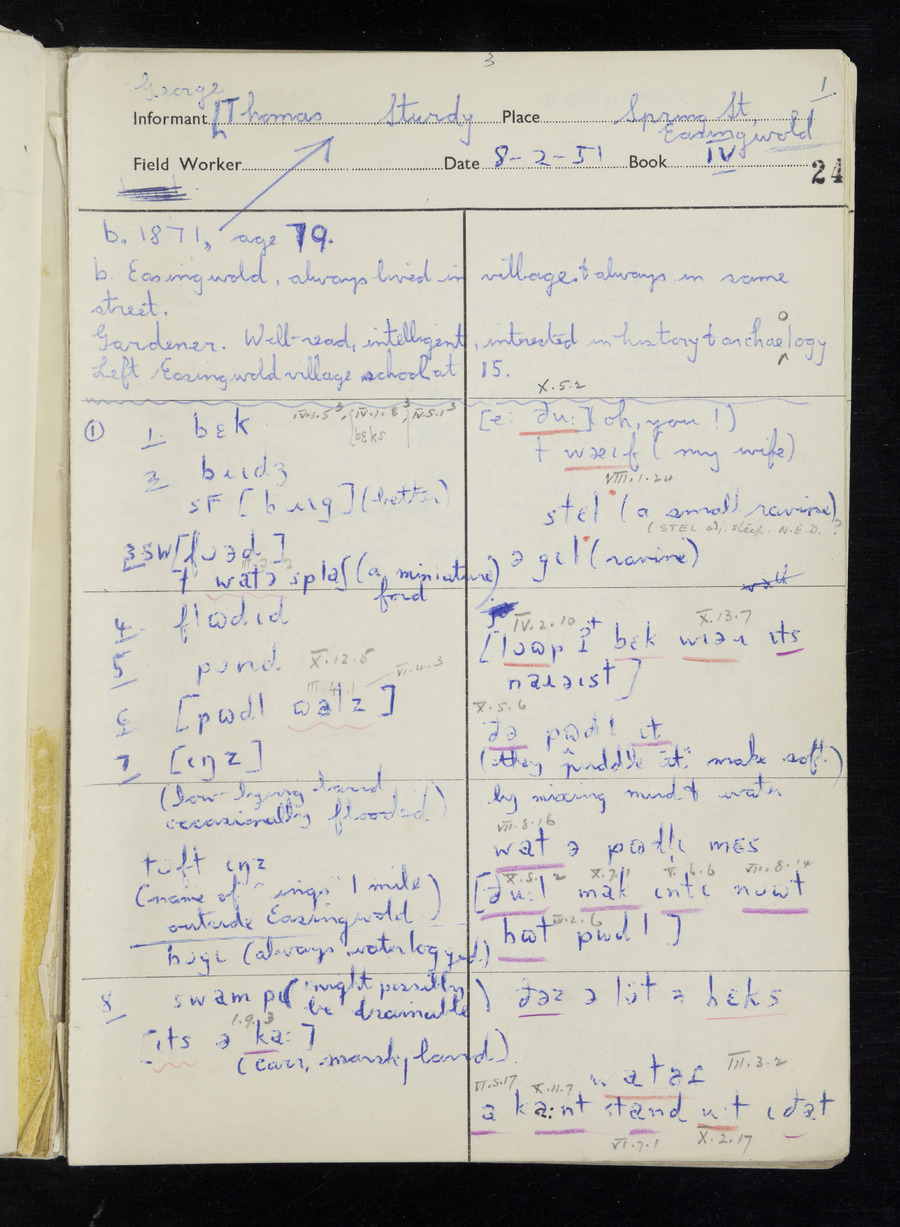 3
George 1.
Informant [Thomas Sturdy Place Spring St,
Easingwold
Field Worker Date 8-2-51 Book IV
24
b. 1871, age 79.
b. Easingwold, always lived in village & always in same
street.
Gardener. Well-read, intelligent, intrested in history & archaeology
Left Easingwold village school at 15.
① 1. bɛk
IV.1.5³, IV.1.8³ IV.5.1³
bɛks
2 bɹɪdʒ
SF [bɹɪg] (better)
3 SW [fʊəd]
+ watə splaʃ (a miniature)
ford
4. flɷdɪd
5 pɔnd X.12.5
III.4.1 VI.4.3
6 [pɷdl ɷəlz]
7 [ɪŋz]
(low-lying land
occasionally flooded)
tɔft ɪŋz
(name of "ings" 1 mile)
outside Easingwold
(always waterlogged.)
8 swampɪ (might possibly)
be drainable
1.9.3
[ɪts ə ka:]
(carr, marshy land).
X.5.2
[e: ðu:] (oh, you!)
+ waɛɪf (my wife)
VIII.1.24
stɛl (a small ravine)
(STEL adj. steep. N.E.D.?
ə gɪl (ravine)
IV.2.10 X.13.7
bɛk wɪəɹ ɪts
naɹəɪst]
X.5.6
ðə pɷdl ɪt
(they "puddle it" make soft)
by mixing mud & water
VII.8.16
wat ə pɷdlɪ mɛs
X.5.1² X.7.1 X.6.6 VII.8.14
[ðu:l mak ɪntɪ nɷwt
III.2.6
bɷt pɷdl]
ðəz ə lɔt ə bɛks
watəɹ III.3.2
VI.5.17 X.11.7
a ka:nt stand ɪ ðat
VI.7.1 X.2.17